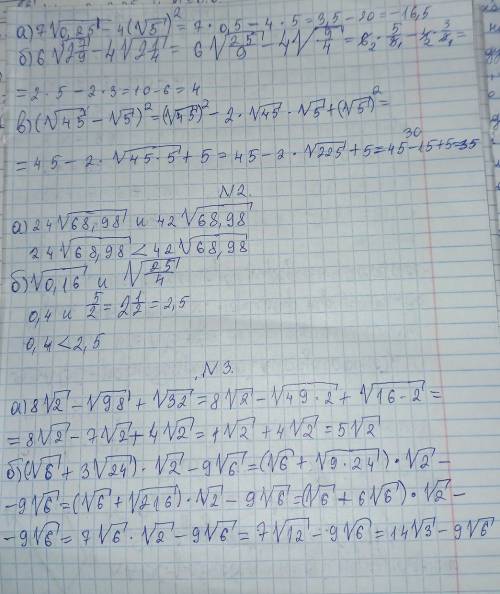 а) 7√0,25 - 4(√5)² = 7 · 0,5 - 4 · 5 = 3,5 - 20 = -16,5
б) 6√2 7/9 - 4√2 1/4 = 6√25/9 - 4√9/4 = 6 2 · 5/3 1 - 4 2 · 3/2 1 =
= 2 · 5 - 2 · 3 = 10 - 6 = 4
в) (√45 - √5)² = (√45)² - 2 · √45 · √5 + (√5)² =
= 45 - 2 · √45 · 5 + 5 = 45 - 2 · √225 + 5 = 45 - 15 + 5 = 35
30
N2.
а) 24√68,98 и 42√68,98
24√68,98 < 42√68,98
б) √0,16 и √25/4
0,4 и 5/2 = 2 1/2 = 2,5
0,4 < 2,5
N3.
а) 8√2 - √98 + √32 = 8√2 - √49 · 2 + √16 - 2 =
= 8√2 - 7√2 + 4√2 = 1√2 + 4√2 = 5√2
б) (√6 + 3√24) · √2 - 9√6 = (√6 + √9 · 24) · √2 -
- 9√6 = (√6 + √216) · √2 - 9√6 = (√6 + 6√6) · √2 -
- 9√6 = 7√6 · √2 - 9√6 = 7√12 - 9√6 = 14√3 - 9√6